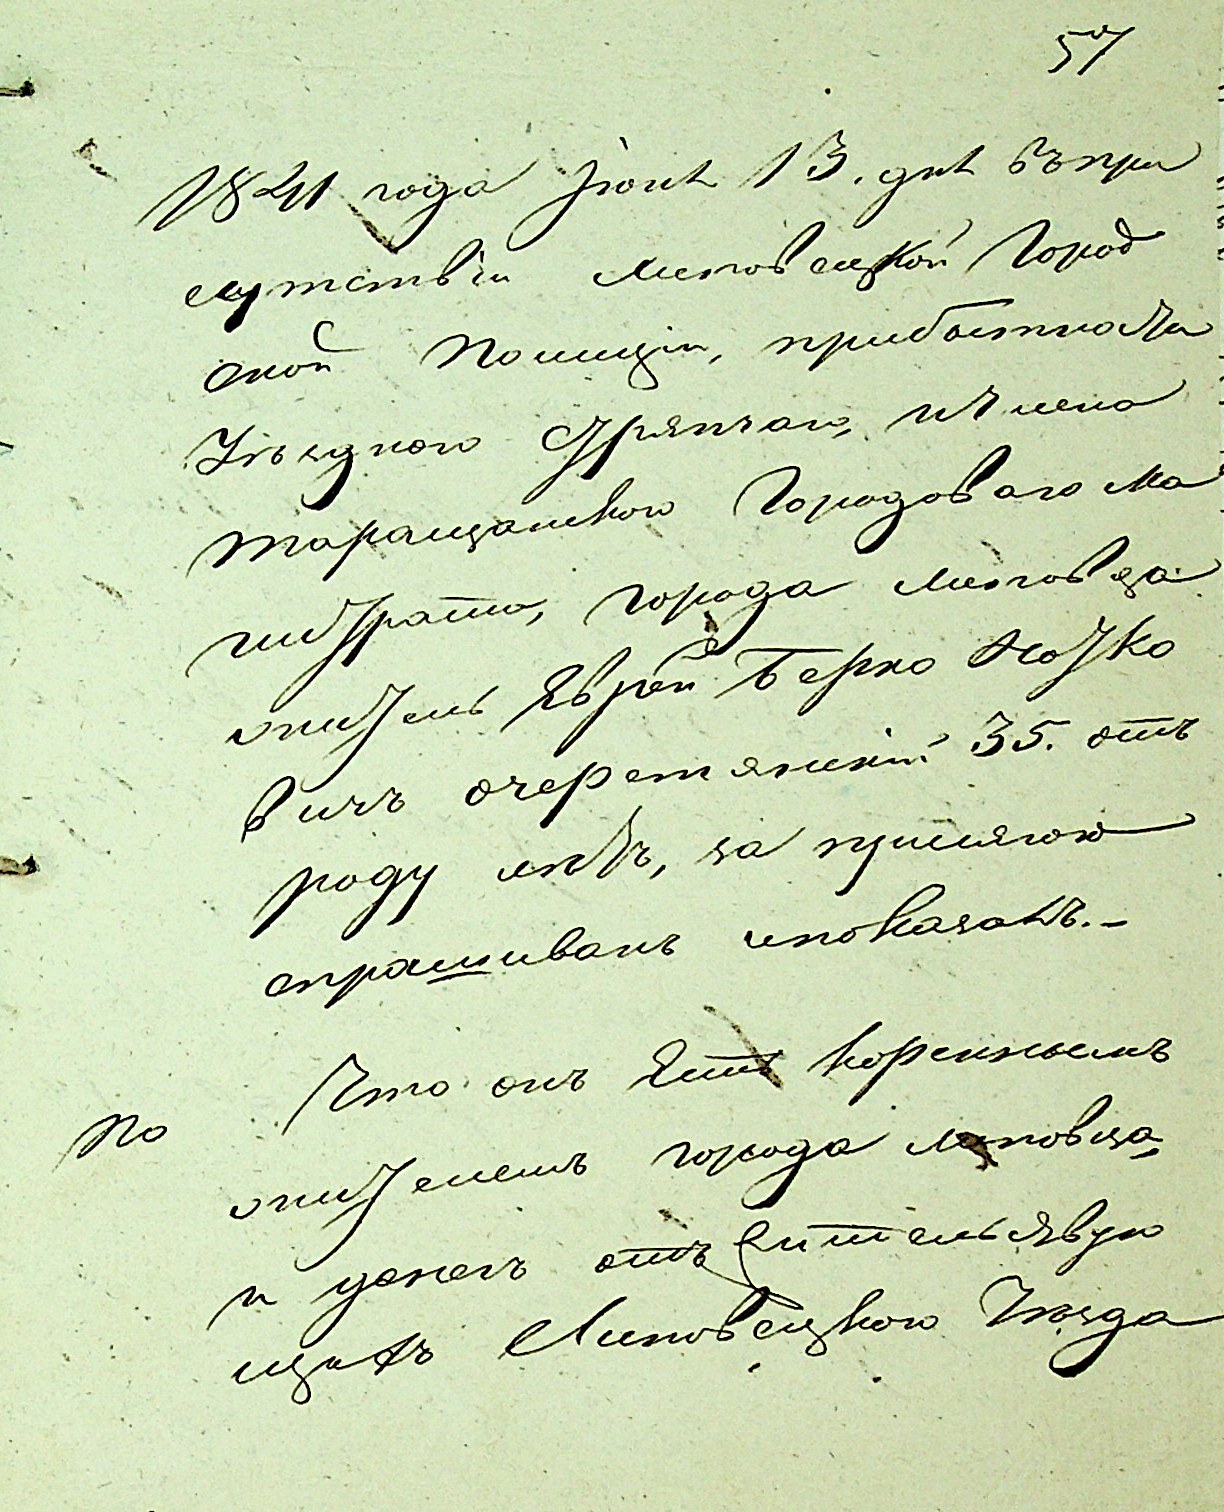 57
1841 года Іюня 13. дня въ при
сутствіи Липовецкой Город
ской Полиціи, прибытности
Уезднаго Стряпчаго, и члена
таращанского Городоваго Ма
гистрата, города Липовца
житель Еврей Берко Иоско
вичъ очеретянскій 35. отъ
роду летъ, за присягою
спрашиванъ и показалъ.-
Что онъ Есть кореннымъ
По
жителемъ города липовца,
и отъ жительствую
щихъ Липовецкого Уезда